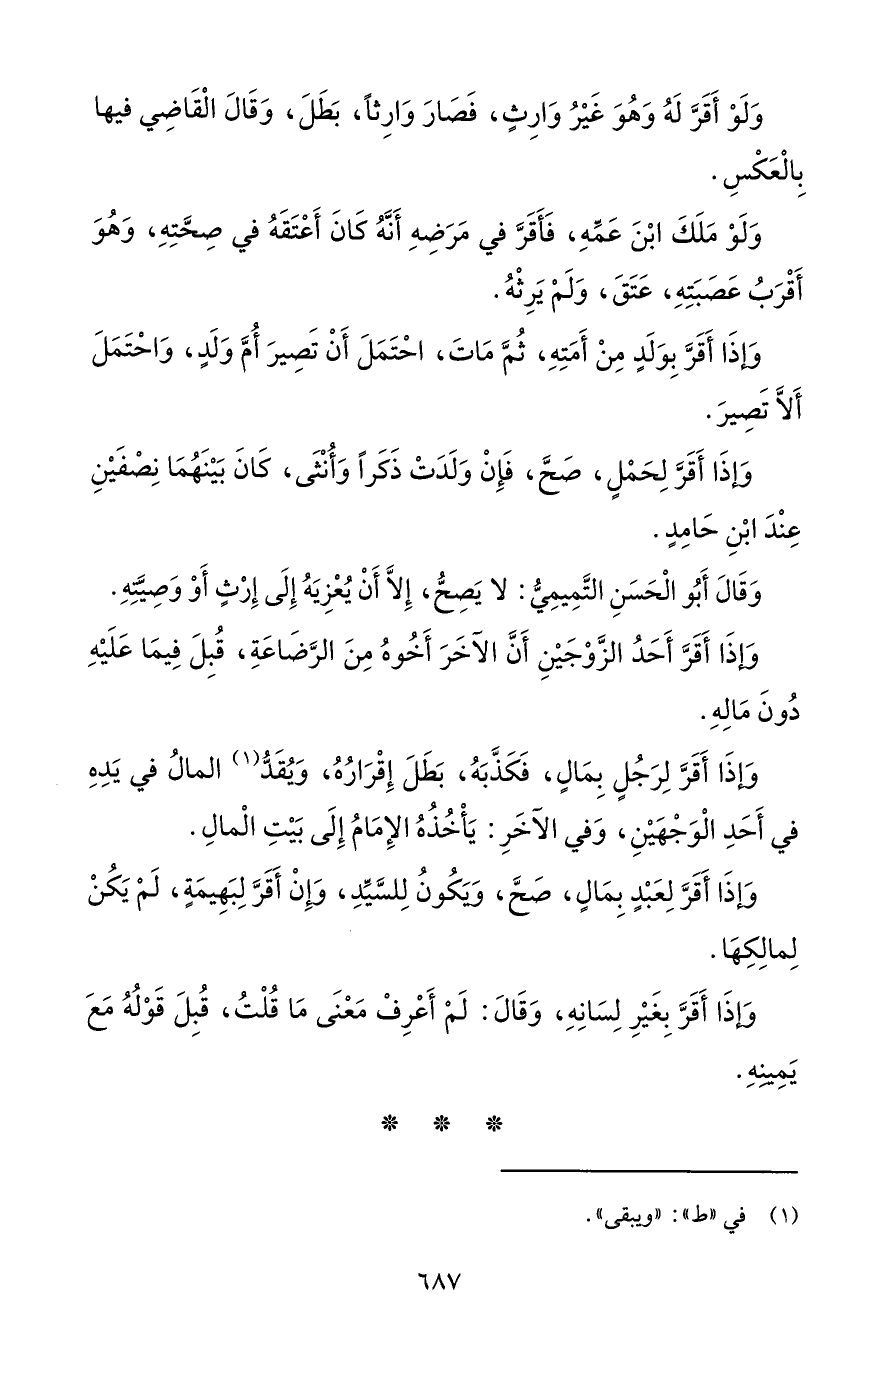 وَلَوْ أَقَرَّ لَهُ وَهُوَ غَيْرُ وَارِثٍ، فَصَارَ وَارِثاً، بَطَلَ، وَقَالَ الْقَاضِي فيها
بِالْعَكْسِ.
وَلَوْ مَلَكَ ابْنَ عَمِّهِ، فَأَقَرَّ في مَرَضِهِ أَنَّهُ كَانَ أَعْتَقَهُ في صِحَّتِهِ، وَهُوَ
أَقْرَبُ عَصَبَتِهِ، عَتَقَ، وَلَمْ يَرِثْهُ.
وَإذَا أَقَرَّ بِوَلَدٍ مِنْ أَمَتِهِ، ثُمَّ مَاتَ، احْتَمَلَ أَنْ تَصِيرَ أُمَّ وَلَدٍ، وَاحْتَمَلَ
أَلاَّ تَصِيرَ.
وَإذَا أَقَرَّ لِحَمْلٍ، صَحَّ، فَإنْ وَلَدَتْ ذَكَراً وَأُنْثَى، كَانَ بَيْنَهُمَا نِصْفَيْنِ
عِنْدَ ابْنِ حَامِدٍ.
وَقَالَ أَبُو الْحَسَنِ التَّمِيمِيُّ: لا يَصِحُّ، إلاَّ أَنْ يُعْزِيَهُ إلَى إرْثٍ أَوْ وَصِيَّتِهِ.
وَإذَا أَقَرَّ أَحَدُ الزَّوْجَيْنِ أَنَّ الآخَرَ أَخُوهُ مِنَ الرَّضَاعَةِ، قُبِلَ فِيمَا عَلَيْهِ
دُونَ مَالِهِ.
وَإذَا أَقَرَّ لِرَجُلٍ بِمَالٍ، فَكَذَّبَهُ، بَطَلَ إقْرَارُهُ، وَيُقَدُّ(١) المالُ في يَدِهِ
في أَحَدِ الْوَجْهَيْنِ، وَفي الآخَرِ: يَأْخُذُهُ الإمَامُ إلَى بَيْتِ الْمالِ.
وَإذَا أَقَرَّ لِعَبْدٍ بِمَالٍ، صَحَّ، وَيَكُونُ لِلسَّيِّدِ، وَإنْ أَقَرَّ لِبَهِيمَةٍ، لَمْ يَكُنْ
لِمالِكِهَا.
وَإذَا أَقَرَّ بِغَيْرِ لِسَانِهِ، وَقَالَ: لَمْ أَعْرِفْ مَعْنَى مَا قُلْتُ، قُبِلَ قَوْلُهُ مَعَ
يَمِينِهِ.
* * *
(١) في «ط»: «ويبقى».
٦٨٧